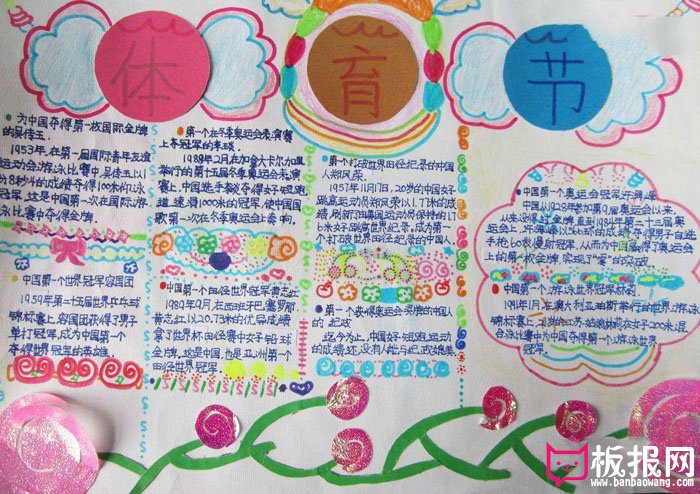 体育节
为中国夺得第一枚国际金牌
的吴传玉
1953年,在第一届国际青年友谊
运动会游泳比赛中,吴传玉以1分
8秒4的成绩夺得100米仰泳冠
军,这是中国第一次在国际游
泳比赛中夺得金牌。
中国第一个世界冠军容国团
1959年第二十五届世界乒乓球
锦标赛上,容国团获得了男子
单打冠军,成为中国第一个
夺得世界冠军的英雄。
第一个在冬季奥运会表演赛
上夺冠军的李琰
1988年2月在加拿大卡尔加里
举行的第十五届冬季奥运会表演
赛上,中国选手李琰夺得女子短跑
道速滑1000米的冠军,使中国国
歌第一次在冬季奥运会上奏响。
中国第一个田径世界冠军黄志红
黄志红以20.73米的优异成绩
掌了世界杯田径赛中女子铅球
金牌。这是中国,也是亚洲第一个
田径世界冠军。
第一个打破世界田径纪录的中国
人郑凤荣
1957年11月17日,20岁的中国女子
跳高运动员郑凤荣以1.77米的成
绩,刷新了由美国运动员保持的1.7
6米女子跳高世界纪录,成为第一
个打破世界田径纪录的中国人。
迄今为止,中国女子短跑运动
中国第一个奥运会冠军许海峰
中国从1928年参加第9届奥运会以来,
从来没得过金牌,直到1984年第二十三届奥
运会上,许海峰以566环的成绩夺得男子自选
手枪60发慢射冠军,从而为中国赢得了奥运会
上的第一枚金牌,实现了“零”的突破。
中国第一个游泳世界冠军林莉
综合泳比赛中为中国夺得第一个游泳世界
冠军。
板报网
www.banbaowang.com